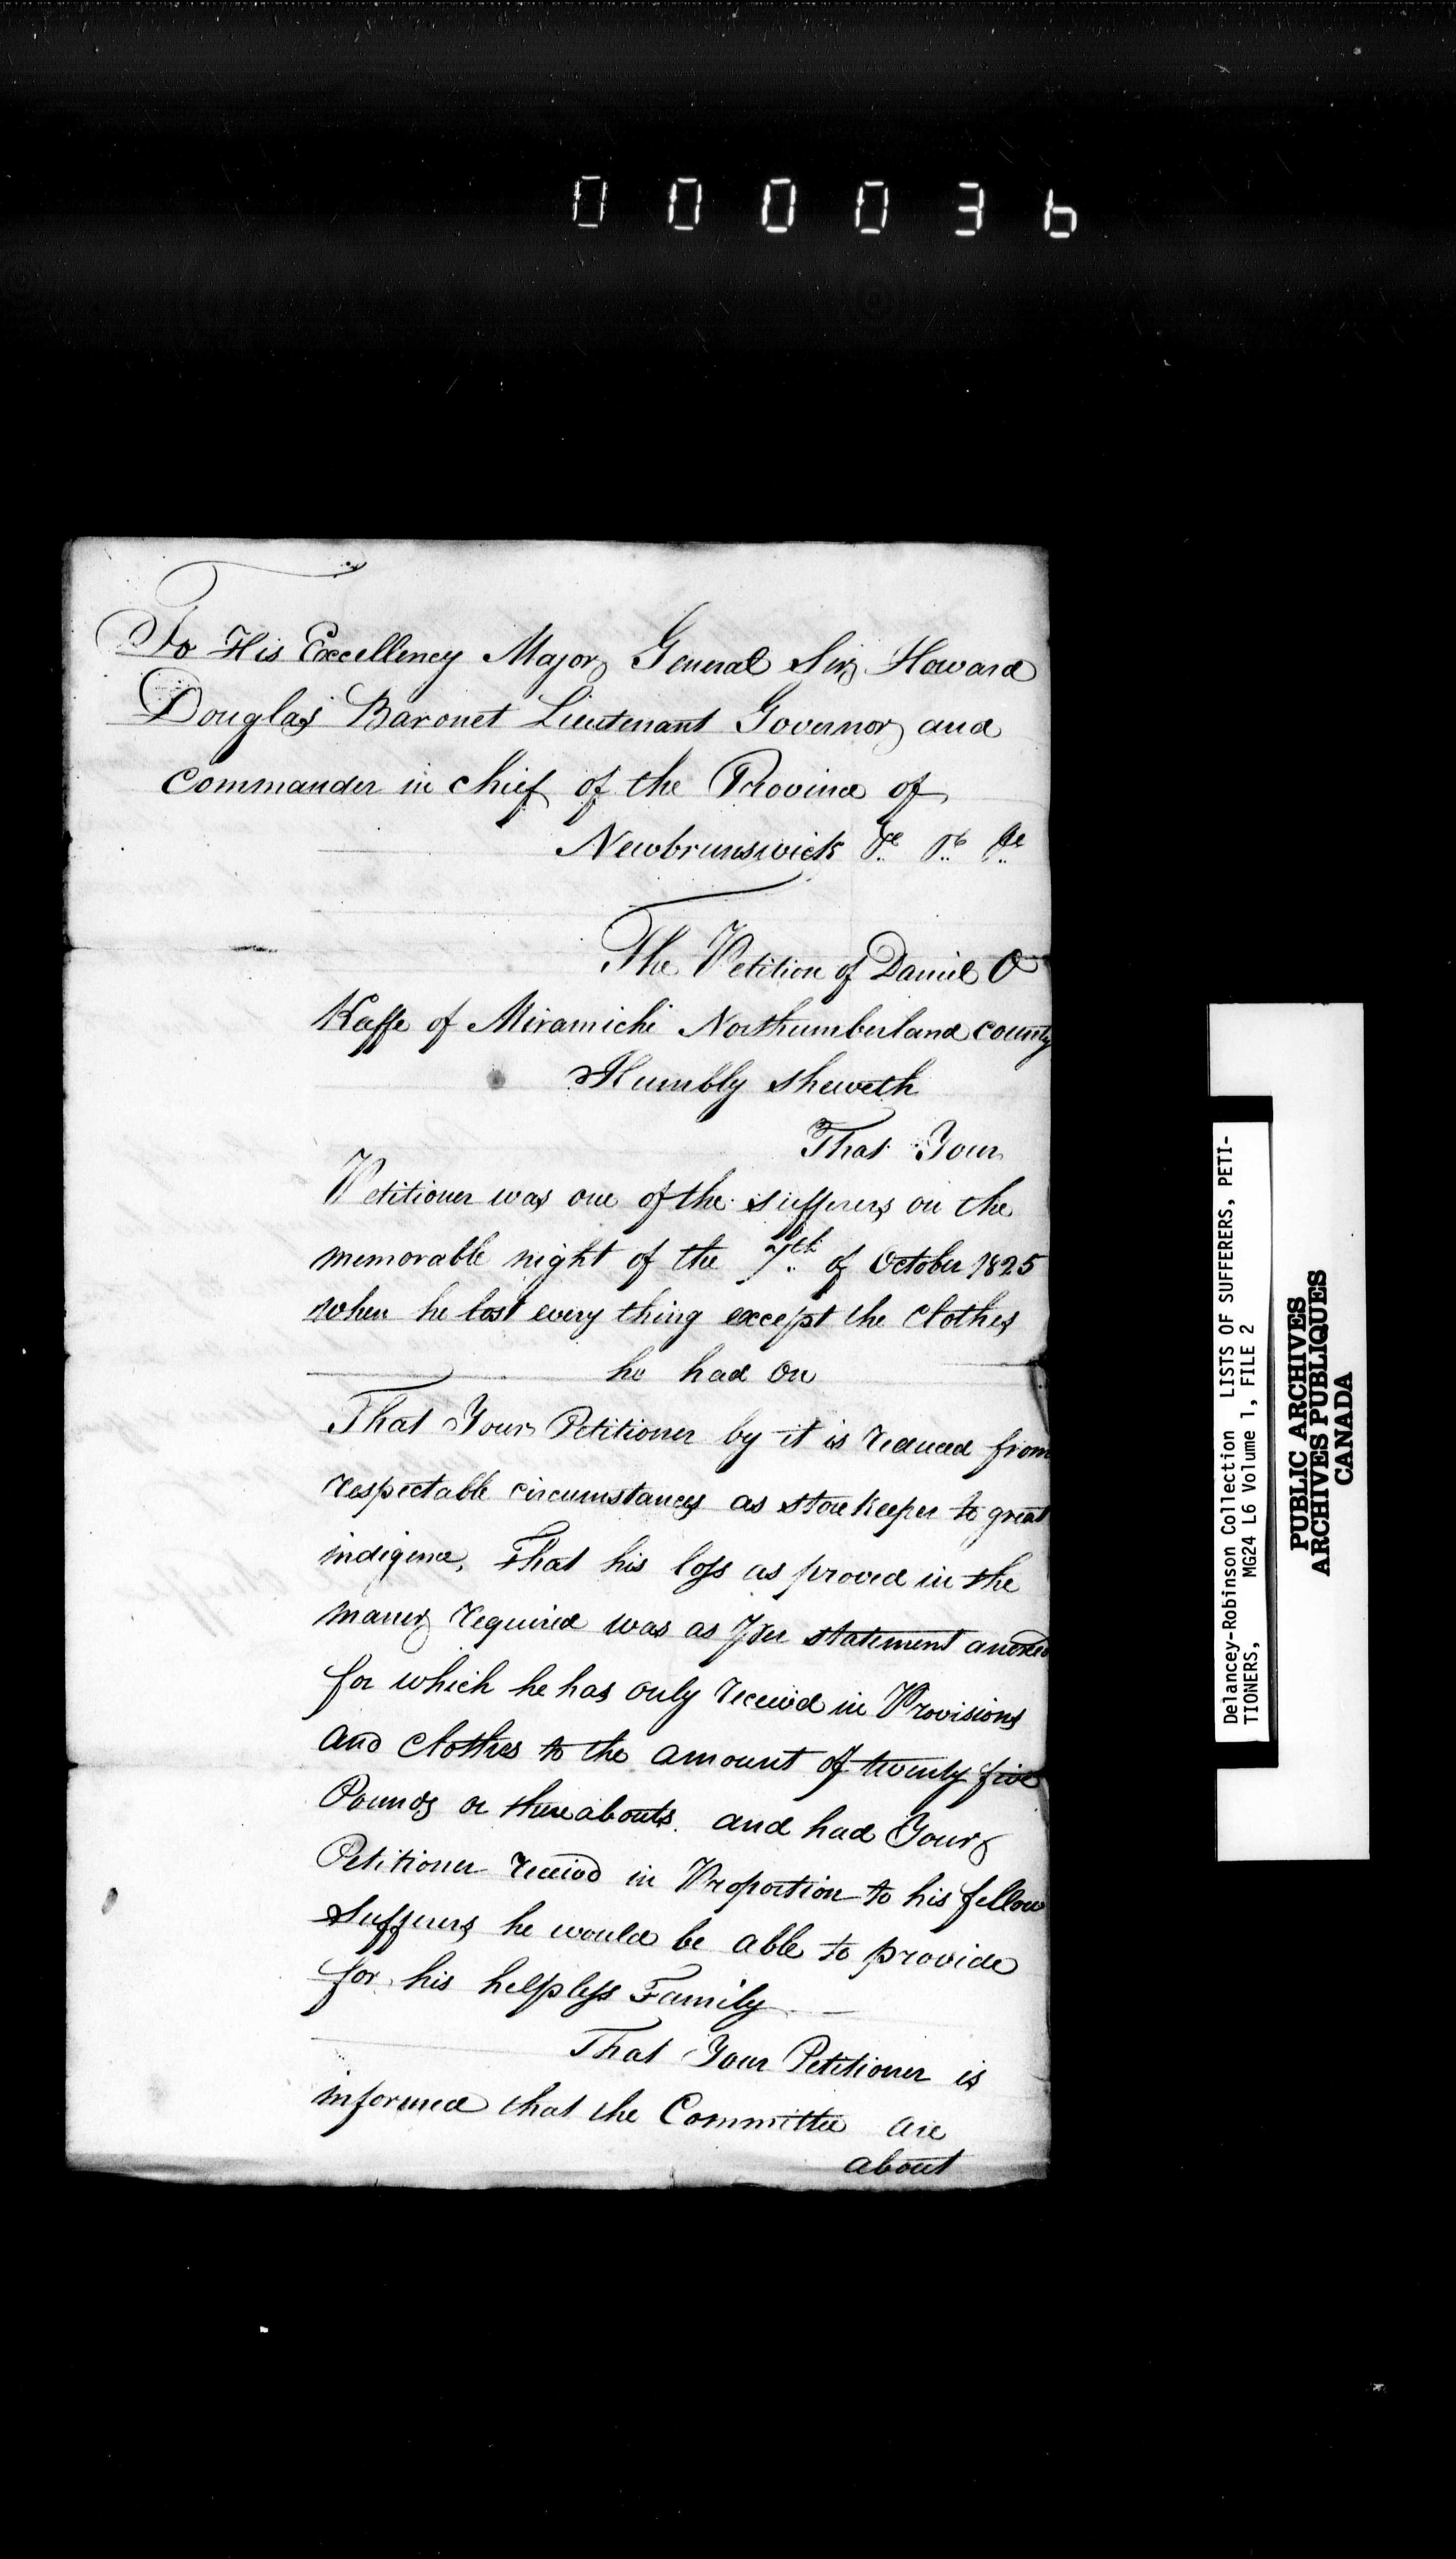 000036
To His Excellency Major General Sir Howard
Douglas Baronet Lieutenant Governor and
Commander in chief of the Province of
Newbrunswick &c &c &c
The Petition of Daniel O
Kaffe of Miramichi Northumberland county
Humbly sheweth
That Your
Petitioner was one of the sufferers on the
memorable night of the 7th of October 1825
when he lost every thing except the clothes
he had on
That Your Petitioner by it is reduced from
respectable circumstances as store keeper to great
indigence, That his loss as proved in the
maner required was as Per statement anexed
for which he has only receivd in Provisions
and clothes to the amount of twenty five
Pounds or thereabouts. and had Your
Petitioner receivd in Proportion to his fellow
Sufferers he would be able to provide
for his helpless Family
That Your Petitioner is
informed that the Committee are
about
Delancey-Robinson Collection LISTS OF SUFFERERS, PETI-
TIONERS, MG24 L6 Volume 1, FILE 2
PUBLIC ARCHIVES
ARCHIVES PUBLIQUES
CANADA